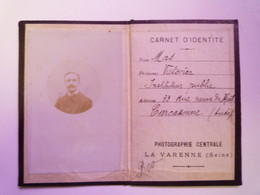 CARNET D'IDENTITÉ
Nom Mas
Prénoms Victorien
Instituteur public
Adresse 33 Rue
Carcassonne (Aude)
PHOTOGRAPHIE CENTRALE
LA VARENNE (Seine)